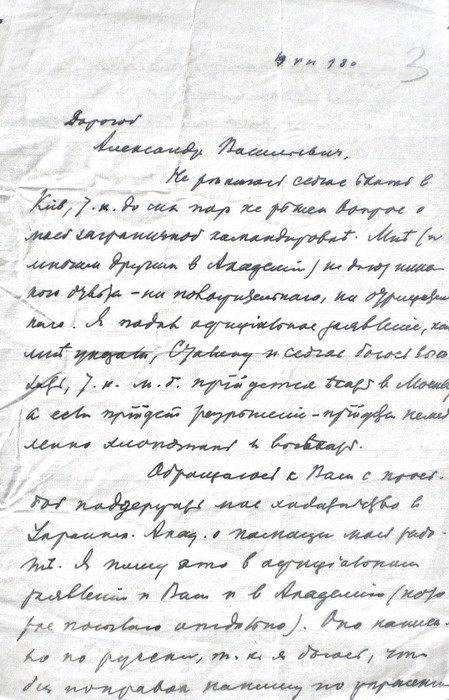 3
Дорогой
Александр Васильевич,
Не решаюсь сейчас ехать в
Киів, т. к. до сих пор не решен вопрос о
моей заграничной командировке. Мнѣ (и
многим другим в Академіи) не дают ника-
кого отвѣта – ни положительного, ни отрицатель
ного. Я подал официальное заявленіе, как
мнѣ указали, Сталину и сейчас боюсь
т. к. м. б. придется ѣхать в Москву
а если придет разрѣшеніе – придется неме
дленно хлопотать и выѣхать.
Обращаюсь к Вам с прось-
бой поддержать мое ходатайство в
Украинск. Акад. о помощи моей рабо-
тѣ. Я пишу это в официальном
заявленіи и Вам и в Академію (кото
рое посылаю отдельно). Оно написа-
но по русски, т. к. я боюсь, что
без поправок напишу по украински